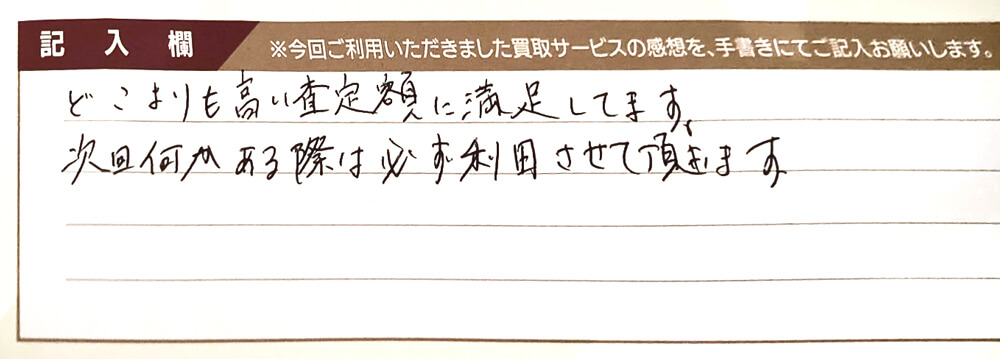 記入欄
※今回ご利用いただきました買取サービスの感想を、手書きにてご記入お願いします。
どこよりも高い査定額に満足してます。
次回何かある際は必ず利用させて頂きます